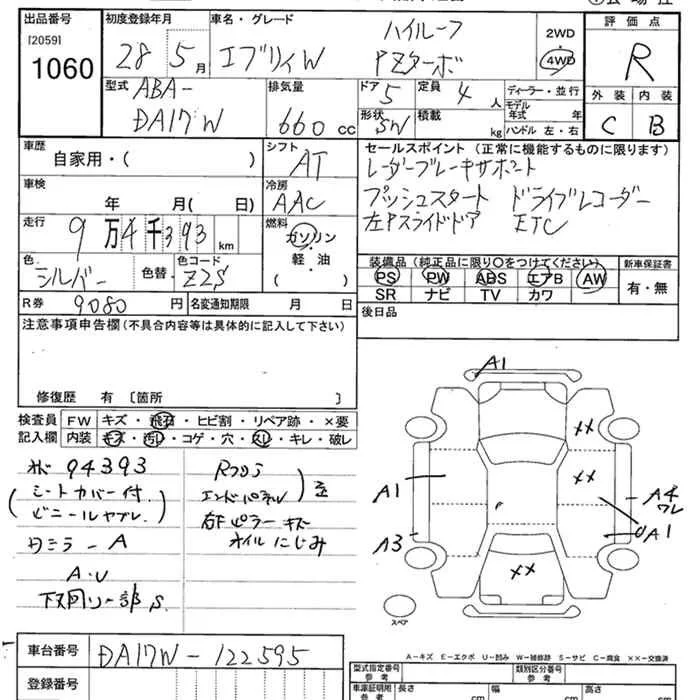 出品番号
[2059]
1060
初度登録年月
28 5 月
車名・グレード
ハイルーフ
エブリイW PZターボ
2WD
4WD
評価点
R
型式
ABA-
DA17W
排気量
660 cc
ドア
5
定員
4 人
形状
SW
積載
kg
ディーラー・並行
モデル
年式 年
ハンドル 左・右
外装
C
内装
B
車歴
自家用・( )
シフト
AT
車検
年 月( 日)
冷房
AAC
走行
9 万 4 千 393 km
燃料
ガソリン
・
軽油
・
( )
色
シルバー
色替
色コード
Z2S
R券
9080 円
名変通知期限 月 日
セールスポイント (正常に機能するものに限ります)
レーダーブレーキサポート
プッシュスタート ドライブレコーダー
左Pスライドドア ETC
装備品 (純正品に限り○をつけてください)
PS PW ABS エアB AW
SR ナビ TV カワ
新車保証書
有・無
後日品
注意事項申告欄 (不具合内容等は具体的に記入して下さい)
修復歴 有 〔箇所 〕
検査員
記入欄
FW キズ・飛石・ヒビ割・リペア跡・×要
内装 キズ・汚レ・コゲ・穴・スレ・キレ・破レ
94393
(シートカバー付.
ビニールヤブレ.)
ミラーA
A.U
下回り一部S
Rフロア
エンドパネル
右Fピラーキズ
オイルにじみ
A1
××
A1
××
A4
ワレ
A3
UA1
××
スペア
A-キズ E-エクボ U-凹み W-補修跡 S-サビ C-腐食 ××-交換済
車台番号
DA17W-122595
登録番号
型式指定番号
参考
類別区分番号
参考
車庫証明用
参考
長さ cm
幅 cm
高さ cm